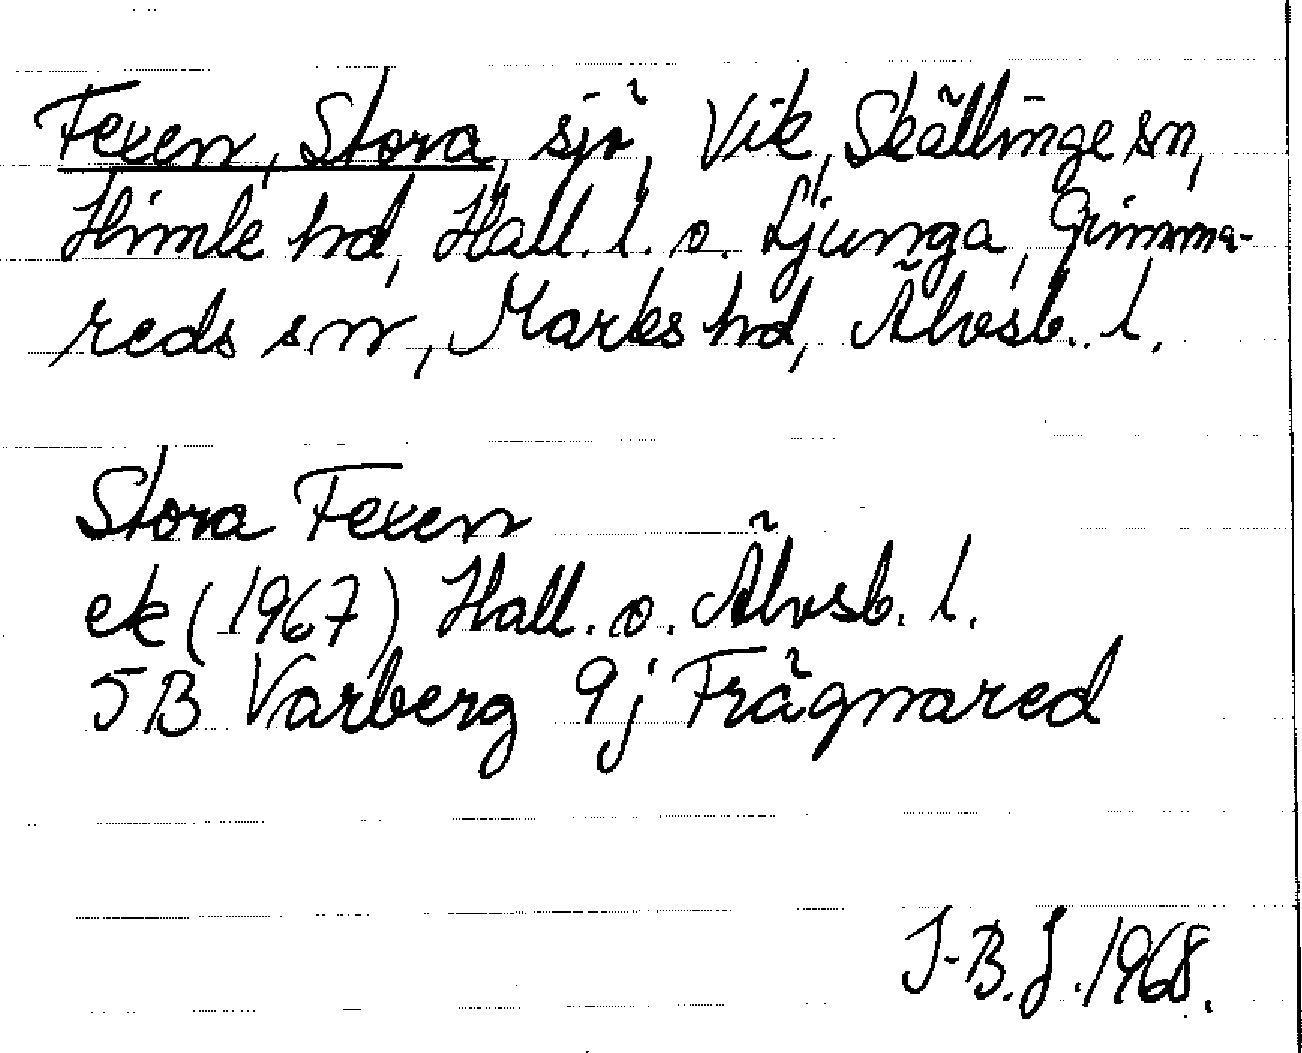 Fexen, Stora, sjö, Vik, Skällinge sn,
Himle hd, Hall. l. o. Ljunga, Grimma-
reds sn, Marks hd, Älvsb. l.
Stora Fexen
ek (1967) Hall. o. Älvsb. l.
5B Varberg 9j Frägnared
I-B. J. 1968.